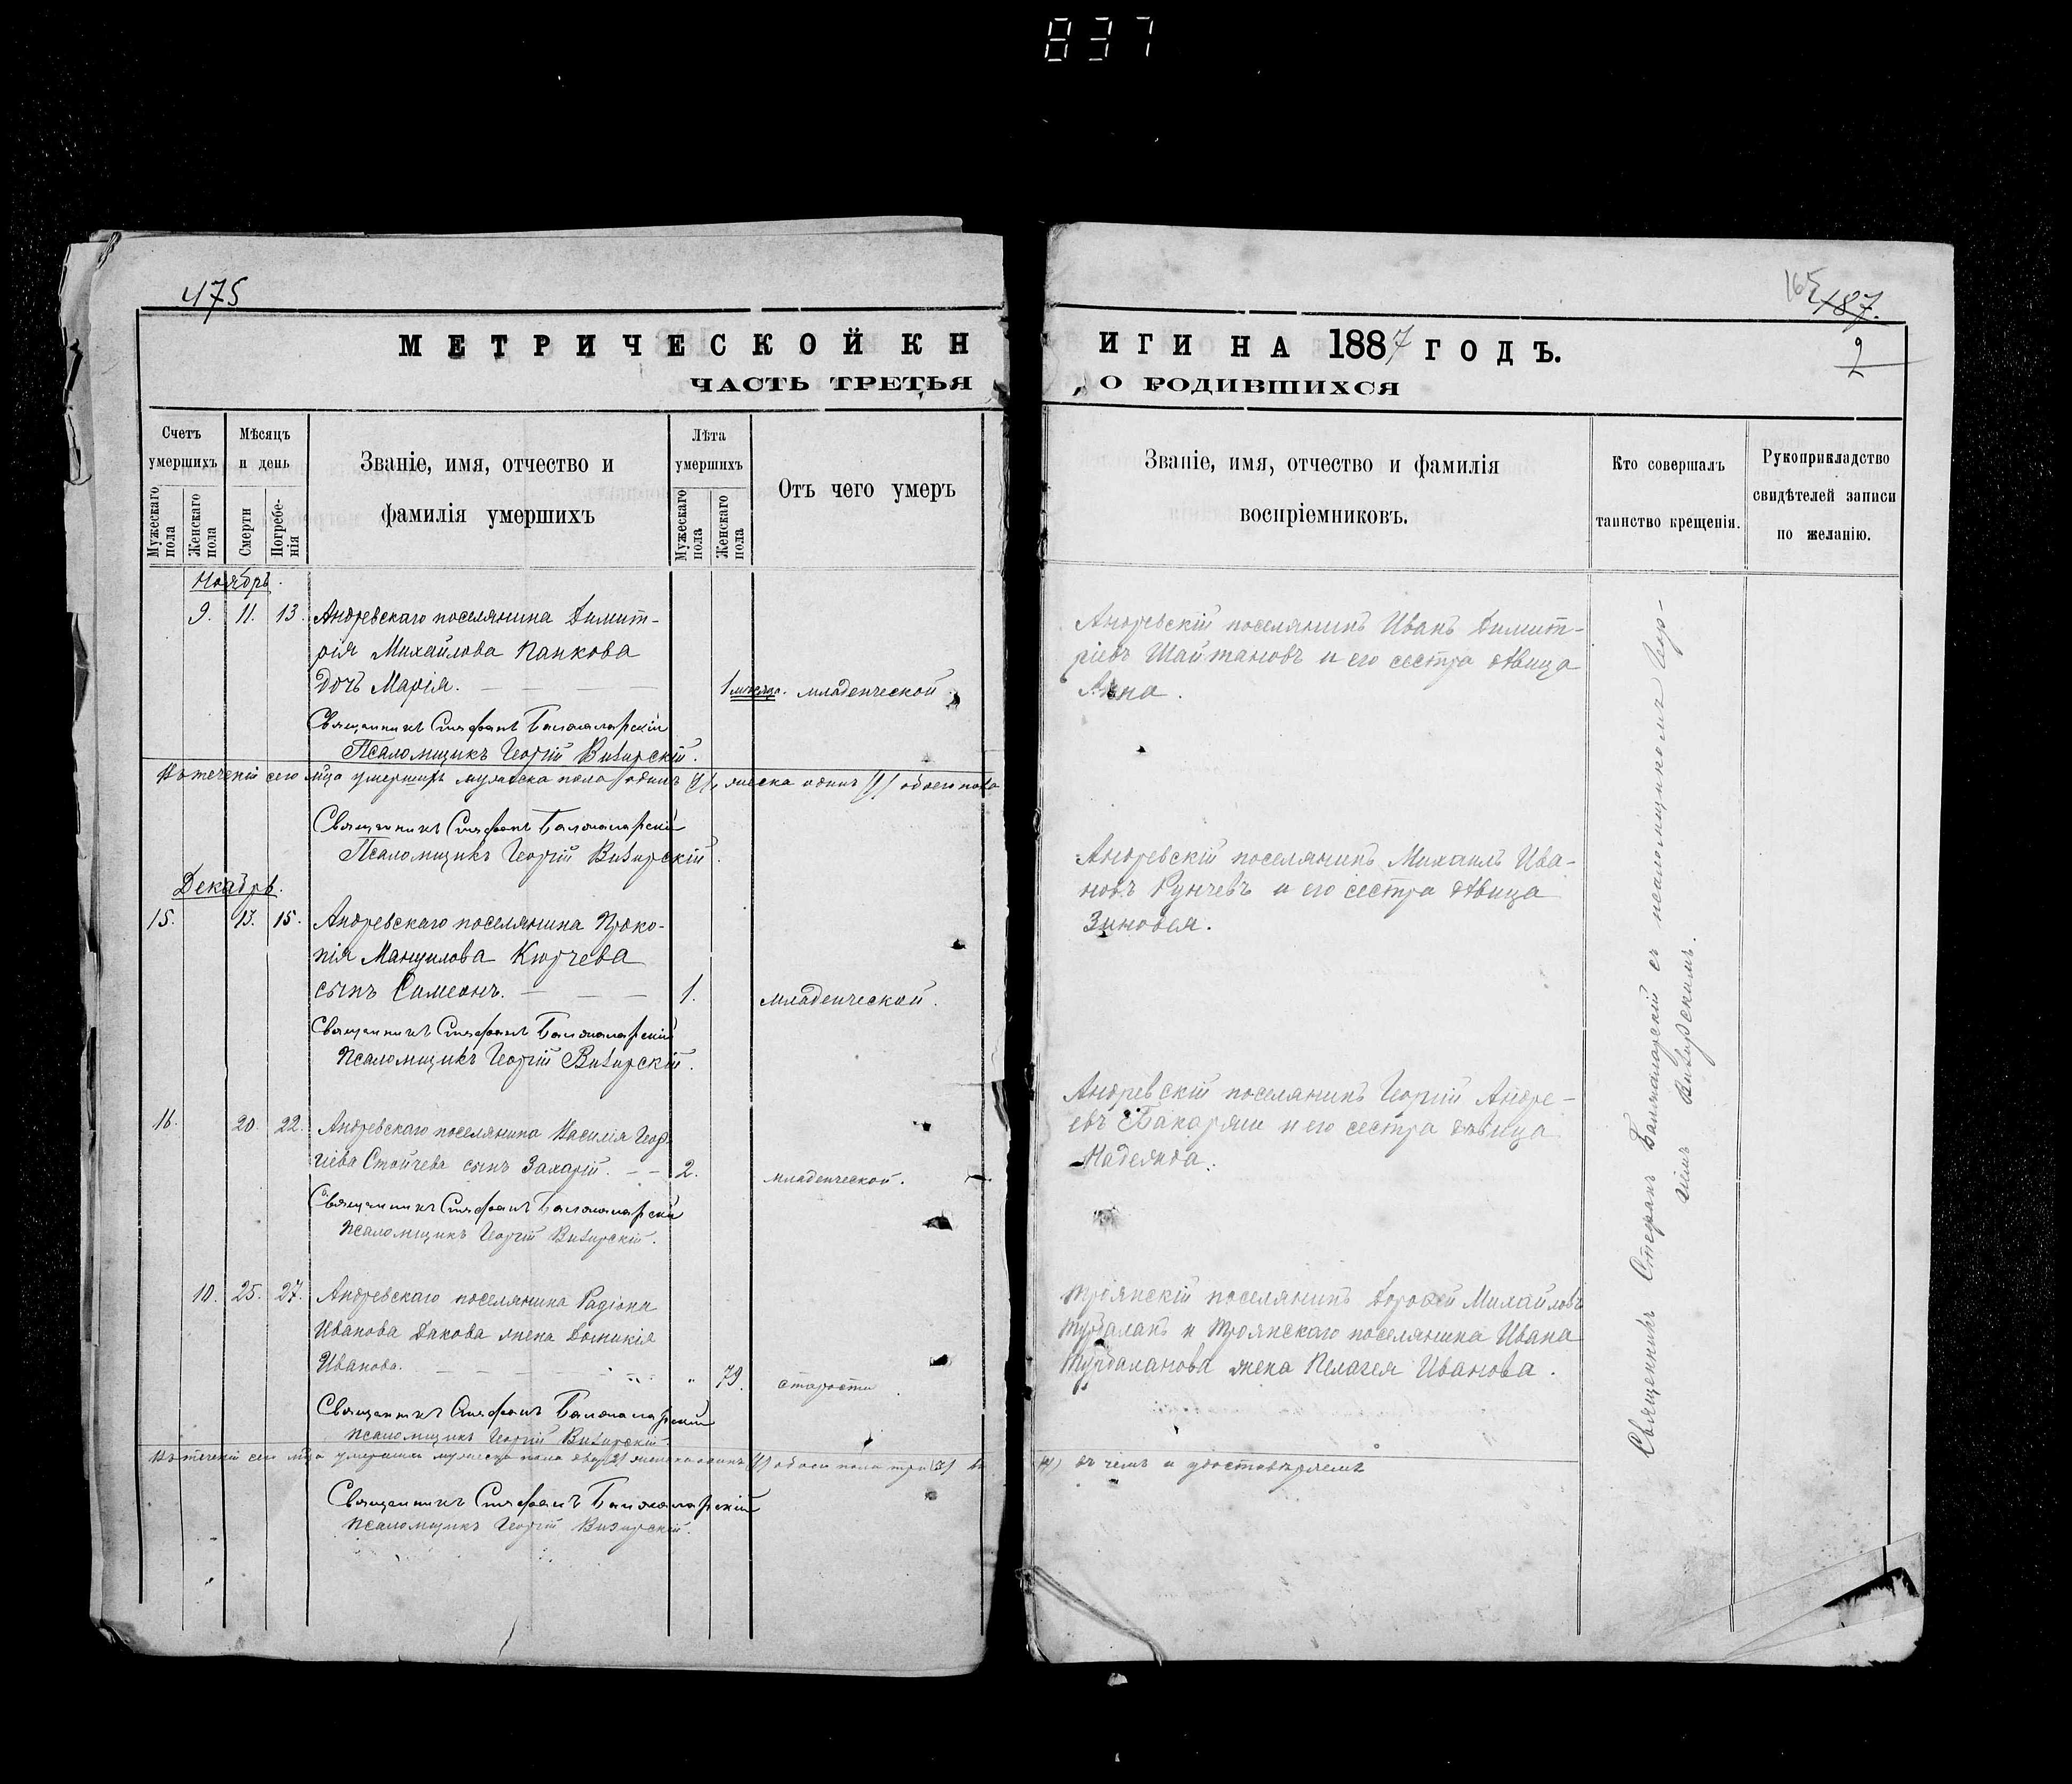 837
475
МЕТРИЧЕСКОЙ КН
ЧАСТЬ ТРЕТЬЯ
Счетъ умершихъ
Мужескаго пола
Женскаго пола
Мѣсяцъ и день
Смерти
Погребенія
Званіе, имя, отчество и
фамилія умершихъ
Лѣта умершихъ
Мужескаго пола
Женскаго пола
Отъ чего умеръ
Ноябрь.
9. 11. 13. Андревскаго поселянина Димит-
рія Михайлова Панкова
дочь Марія. 1 мѣсяца. младенческой
Священникъ Стефанъ
Псаломщикъ Георгій Визирскій.
Въ теченіи сего мѣца умершихъ мужеска пола одинъ (1), женска одинъ (1) обоего пола
Священникъ Стефанъ
Псаломщикъ Георгій Визирскій.
Декабрь.
15. 13. 15. Андревскаго поселянина Проко-
пія Мануилова Кюрчева
сынъ Симеонъ. 1. младенческой.
Священникъ Стефанъ
Псаломщикъ Георгій Визирскій.
16. 20. 22. Андревскаго поселянина Василія Геор-
гіева Стойчева сынъ Захарій. 2. младенческой.
Священникъ Стефанъ
Псаломщикъ Георгій Визирскій.
10. 25. 27. Андревскаго поселянина Радіона
Иванова Дакова жена Домникія
Иванова. 79. старости
Священникъ Стефанъ
Псаломщикъ Георгій Визирскій.
Въ теченіи сего мѣца умершихъ мужеска пола два (2) женска одинъ (1) обоего пола три (3) въ
Священникъ Стефанъ
Псаломщикъ Георгій Визирскій.
165
187.
2
ИГИ НА 1887 ГОДЪ.
, О РОДИВШИХСЯ
Званіе, имя, отчество и фамилія
воспріемниковъ.
Кто совершалъ
таинство крещенія.
Рукоприкладство
свидѣтелей записи
по желанію.
Андревскій поселянинъ Иванъ Димит-
ріевъ Шайтановъ и его сестра дѣвица
Анна.
Андревскій поселянинъ Михаилъ Ива-
новъ Рунчевъ и его сестра дѣвица
Зиновея.
Андревскій поселянинъ Георгій Андре-
евъ и его сестра дѣвица
Надежда.
Троянскій поселянинъ Дорофей Михайловъ
Турбаланъ и Троянскаго поселянина Ивана
Турбаланова жена Пелагея Иванова.
въ чемъ и удостовѣряемъ
Священникъ Стефанъ съ псаломщикомъ Геор-
гіемъ Визирскимъ.